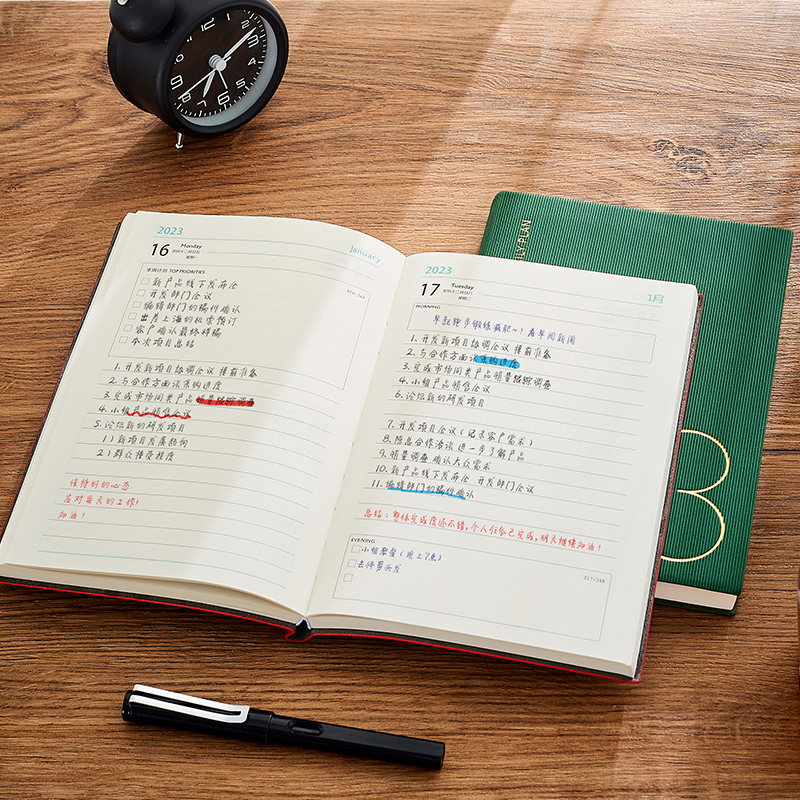 2023
January
16
Monday
农历十二月廿五
星期一
本周计划 TOP PRIORITIES
016-349
新产品线下发布会
开发部门会议
编辑部门的稿件确认
出差上海的机票预订
客户确认最终样稿
本次项目总结
1. 开发新项目协调会议 提前准备
2. 与合作方面谈采购进度
3. 完成市场同类产品销量跟踪调查
4. 小组产品销售会议
5. 论新的研发项目
1) 新项目发展趋向
2) 群众接受程度
保持好的心态
应对每天的工作!
加油!
2023
1月
17
Tuesday
农历十二月廿六
星期二
MORNING
早起跑步锻炼减肥~! 看早间新闻
1. 开发新项目协调会议 提前准备
2. 与合作方面谈采购进度
3. 完成市场同类产品销量跟踪调查
4. 小组产品销售会议
6. 论新的研发项目
7. 开发项目会议(记录客户需求)
8. 陈总合作洽谈 进一步了解产品
9. 销量调查 确认大众需求
10. 新产品线下发布会 开发部门会议
11. 编辑部门的稿件确认
总结: 整体完成度还不错, 个人任务已完成, 明天继续加油!
EVENING
017-348
小组聚餐(晚上7点)
去修剪头发
LY PLAN
3
12
1
2
3
4
5
6
7
8
9